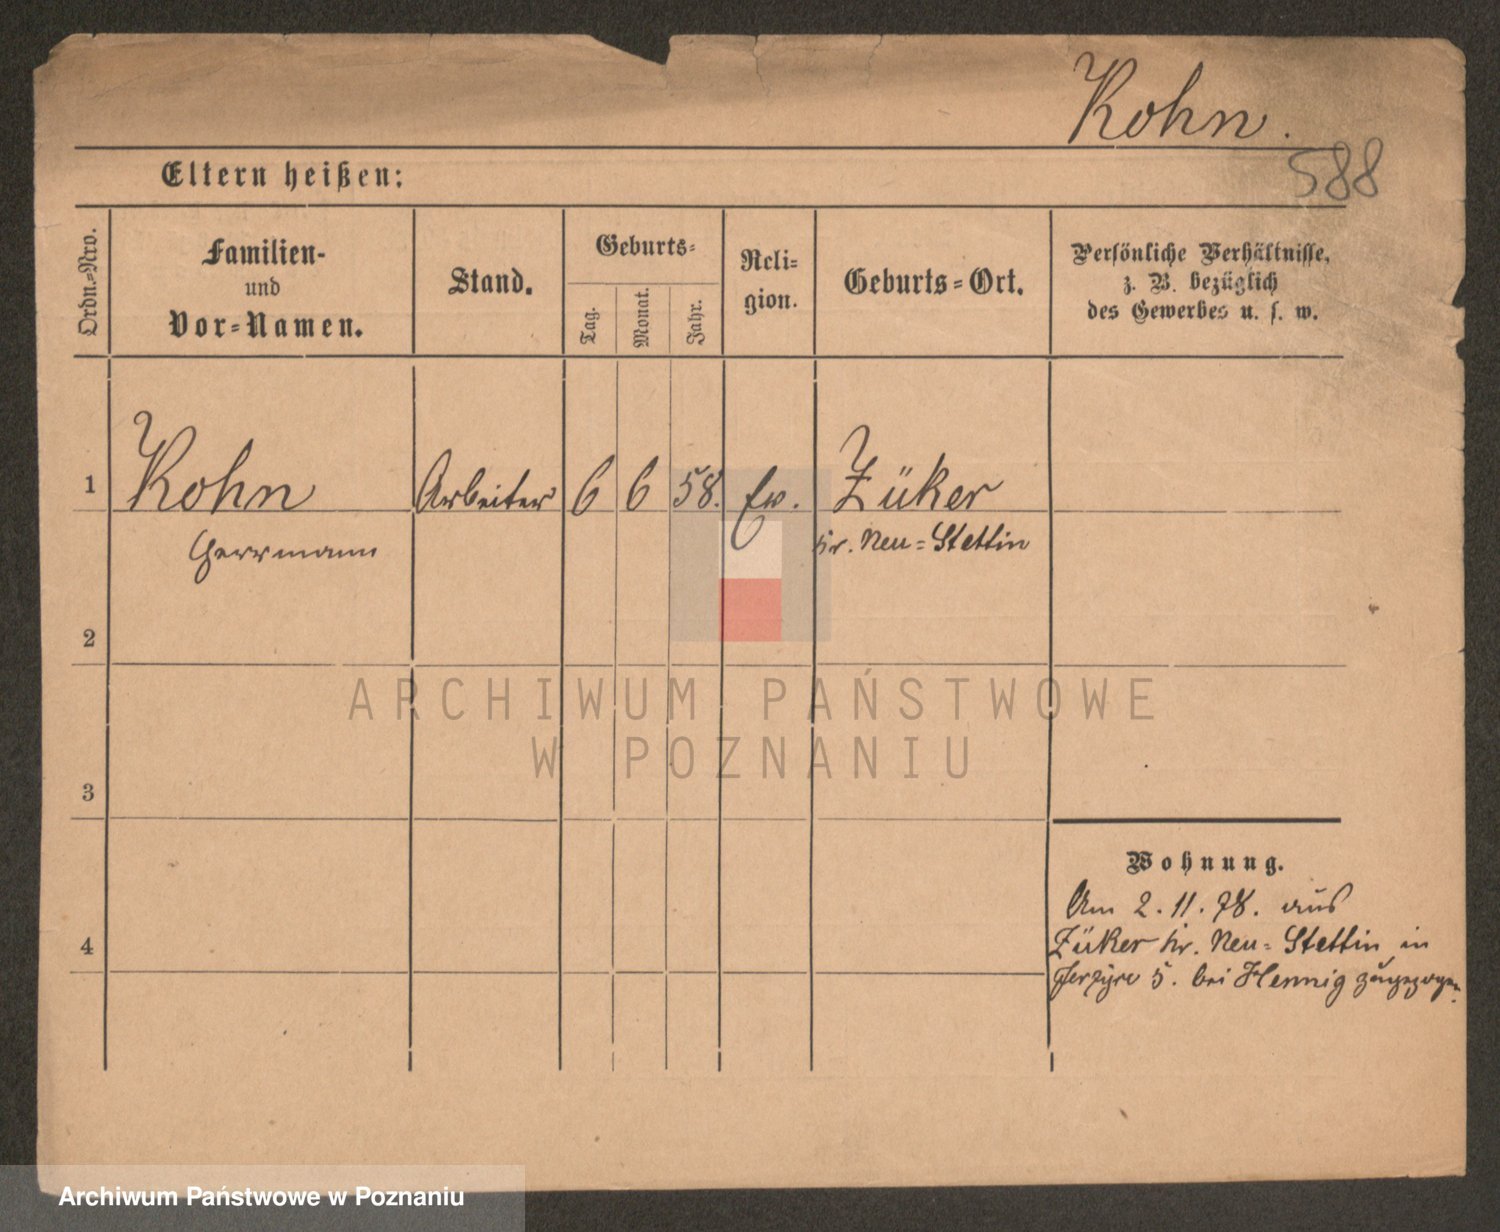 Kohn.
588
Eltern heißen:
Ordn.=Nro.
Familien-
und
Vor=Namen.
Stand.
Geburts=
Tag.
Monat.
Jahr.
Reli=
gion.
Geburts=Ort.
Persönliche Verhältnisse,
z. B. bezüglich
des Gewerbes u. s. w.
1 Kohn Arbeiter 6 6 58. Ev. Züker
Herrmann Kr. Neu=Stettin
2
ARCHIWUM PAŃSTWOWE
W POZNANIU
3
Wohnung.
Am 2. 11. 78. aus
4 Züker Kr. Neu=Stettin in
5. bei Hennig zugezogen.
Archiwum Państwowe w Poznaniu